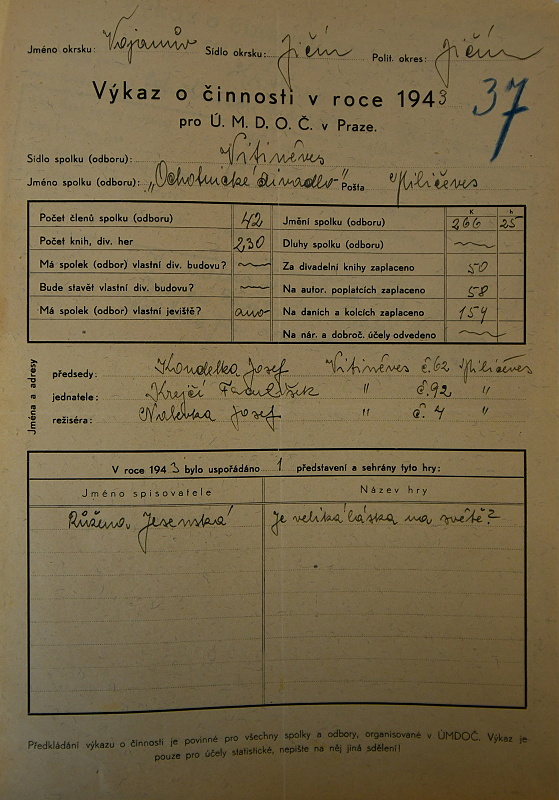 Jméno okrsku: Sídlo okrsku: Jičín Polit. okres: Jičín
Výkaz o činnosti v roce 1943
37
pro Ú. M. D. O. Č. v Praze.
Sídlo spolku (odboru): Vitiněves
Jméno spolku (odboru): „Ochotnické divadlo" Pošta Miličeves
K h
Počet členů spolku (odboru) 42 Jmění spolku (odboru) 266 25
Počet knih, div. her 230 Dluhy spolku (odboru)
Má spolek (odbor) vlastní div. budovu? Za divadelní knihy zaplaceno 50
Bude stavět vlastní div. budovu? Na autor. poplatcích zaplaceno 58
Má spolek (odbor) vlastní jeviště? ano Na daních a kolcích zaplaceno 154
Na nár. a dobroč. účely odvedeno
Jména a adresy
předsedy: Kondelka Josef Vitiněves č. 62 Miličeves
jednatele: Krejčí " č. 92 "
režiséra: Josef " č. 4 "
V roce 1943 bylo uspořádáno 1 představení a sehrány tyto hry:
Jméno spisovatele Název hry
Růžena Jesenská Je veliká láska na světě?
Předkládání výkazu o činnosti je povinné pro všechny spolky a odbory, organisované v ÚMDOČ. Výkaz je
pouze pro účely statistické, nepište na něj jiná sdělení!